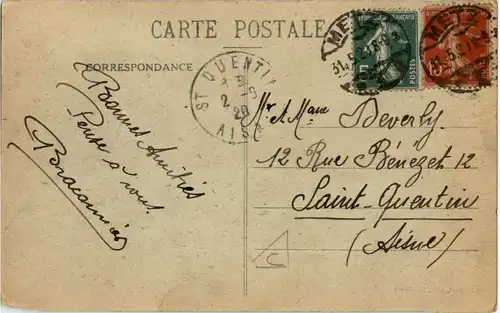 CARTE POSTALE
CORRESPONDANCE
Bonnes Amitiés
Pense à vous.
Braconnier
ST QUENTIN
AISNE
METZ
METZ
POSTES
Mr & Mme Deverly
12 Rue Bénézet 12
Saint-Quentin
(Aisne)
C